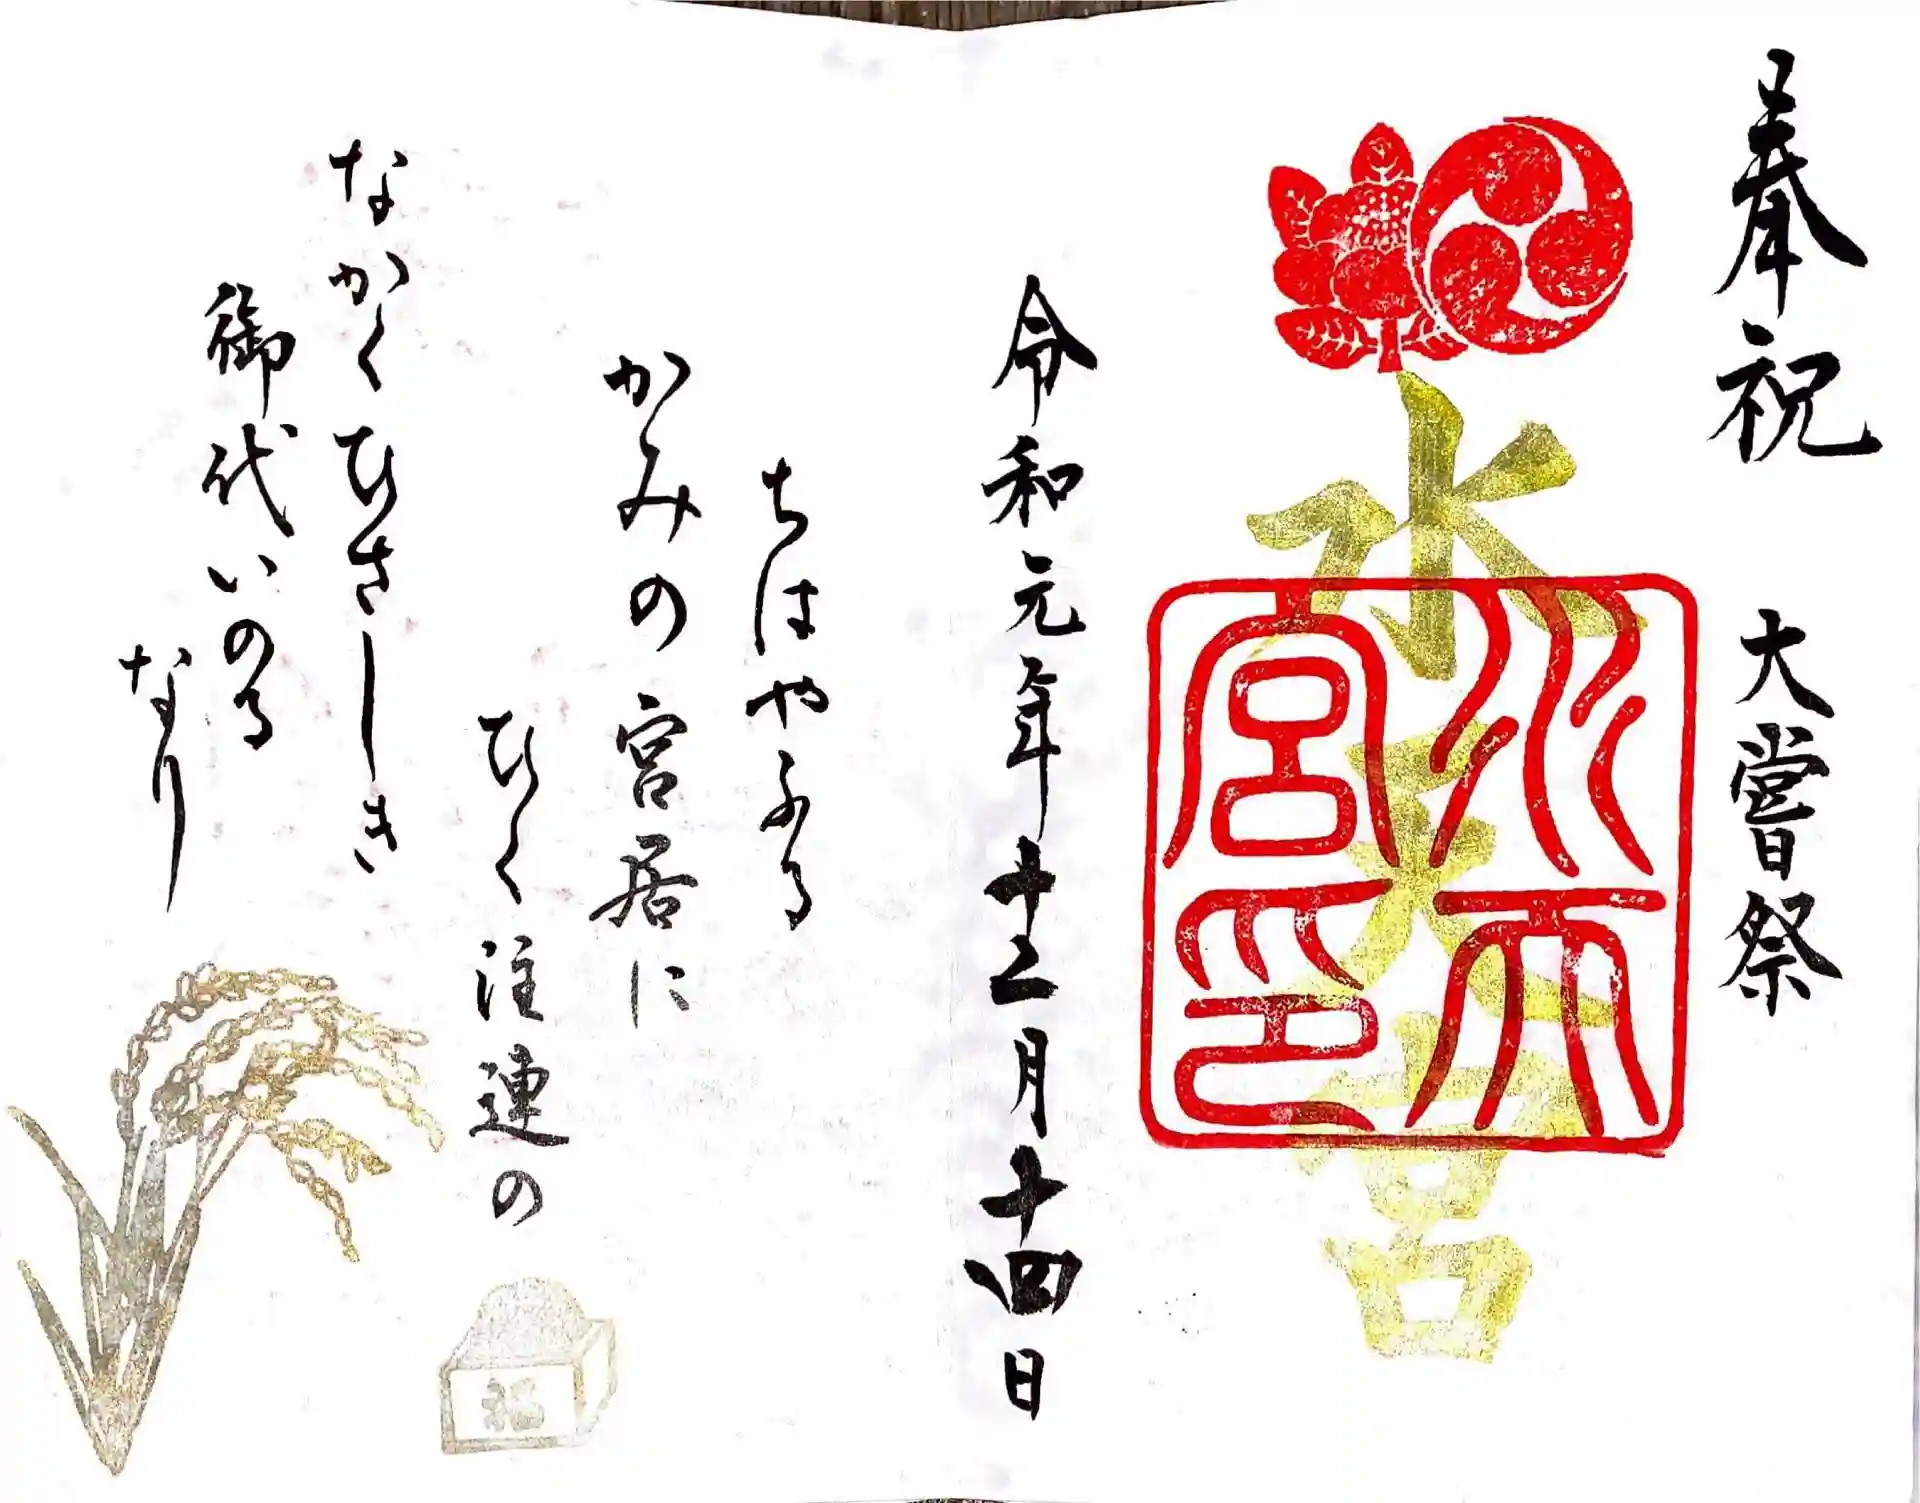 奉祝 大嘗祭
水天宮
水天宮印
令和元年十二月十四日
ちはやふる
かみの宮居に
ひく注連の
なかくひさしき
御代いのる
なり
福